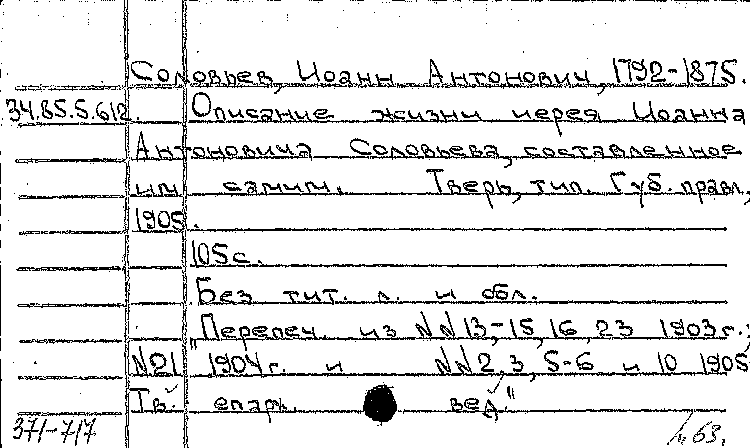 Соловьев, Иоанн Антонович, 1792-1875.
34.85.5.612. Описание жизни иерея Иоанна
Антоновича Соловьева, составленное
им самим. Тверь, тип. Губ. правл.,
1905.
105 с.
Без тит. л. и обл.
"Перепеч. из №№ 13,-15, 16, 23 1903 г.;
№ 21 1904 г. и №№ 2, 3, 5-6 и 10 1905
Тв. епарх. вед."
371-717 63.